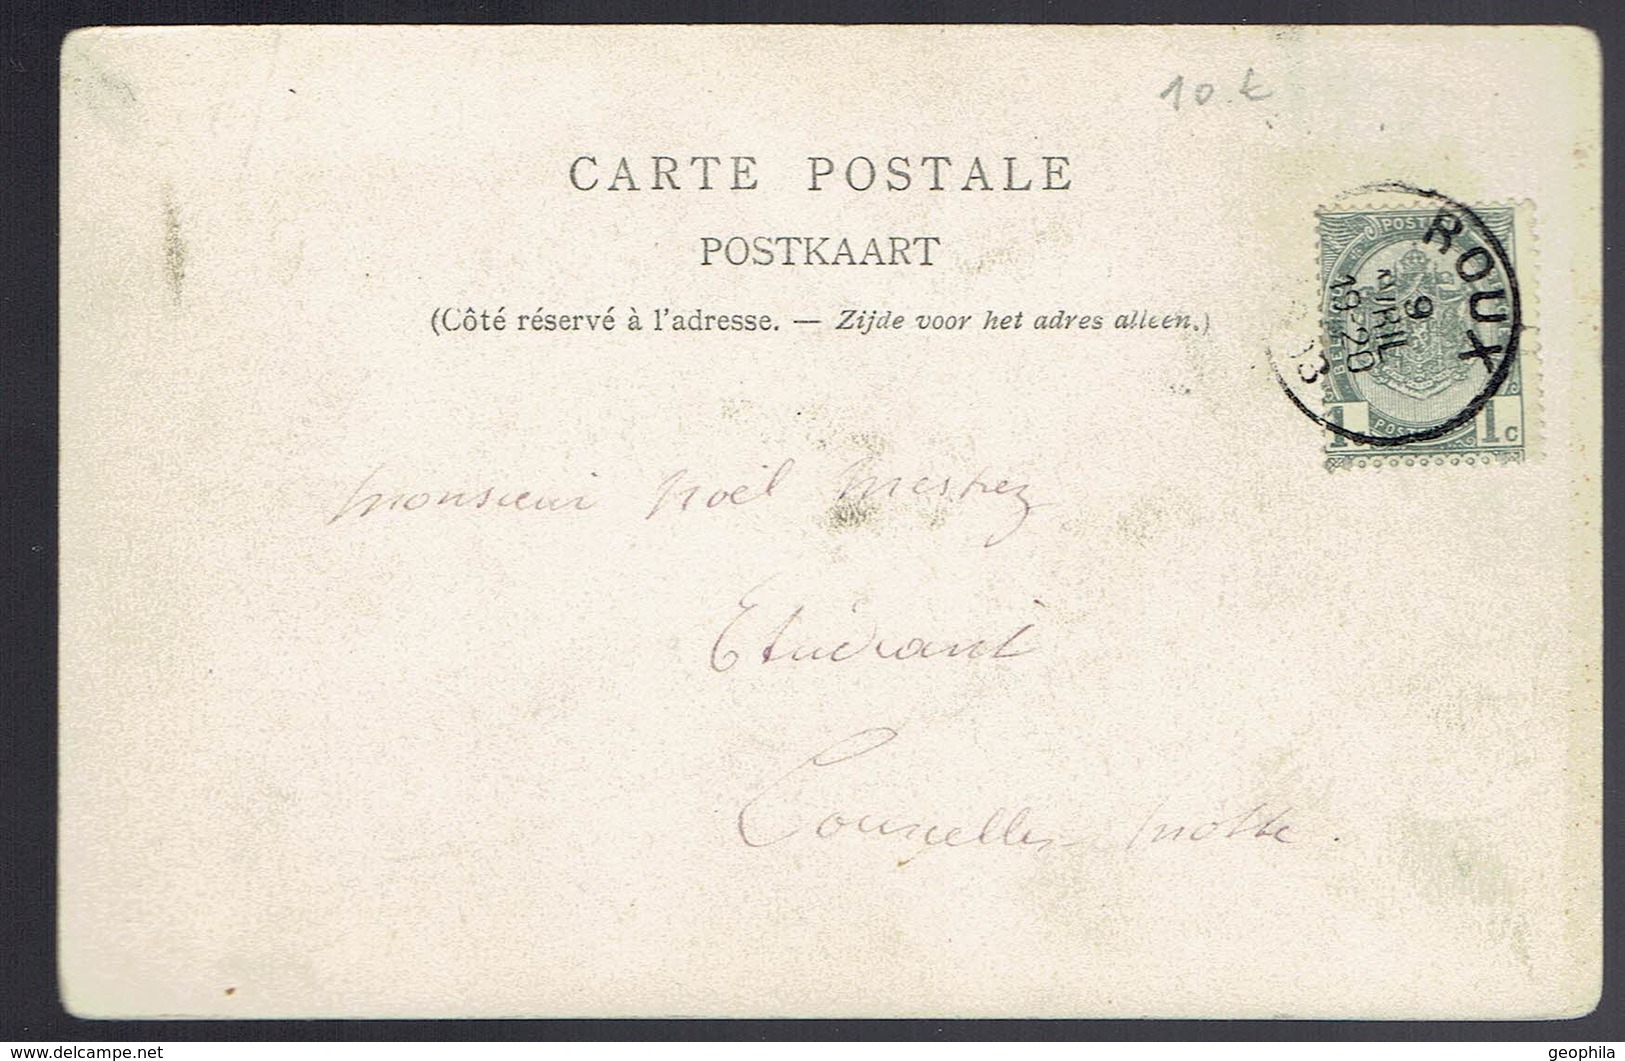 10 €
CARTE POSTALE
POSTKAART
(Côté réservé à l'adresse. — Zijde voor het adres alleen.)
ROUX
9
AVRIL
19-20
03
POSTE
1 1c
POST
Monsieur Noël Mestrez
Etudiant
Courcelles Motte.
delcampe.net
geophila